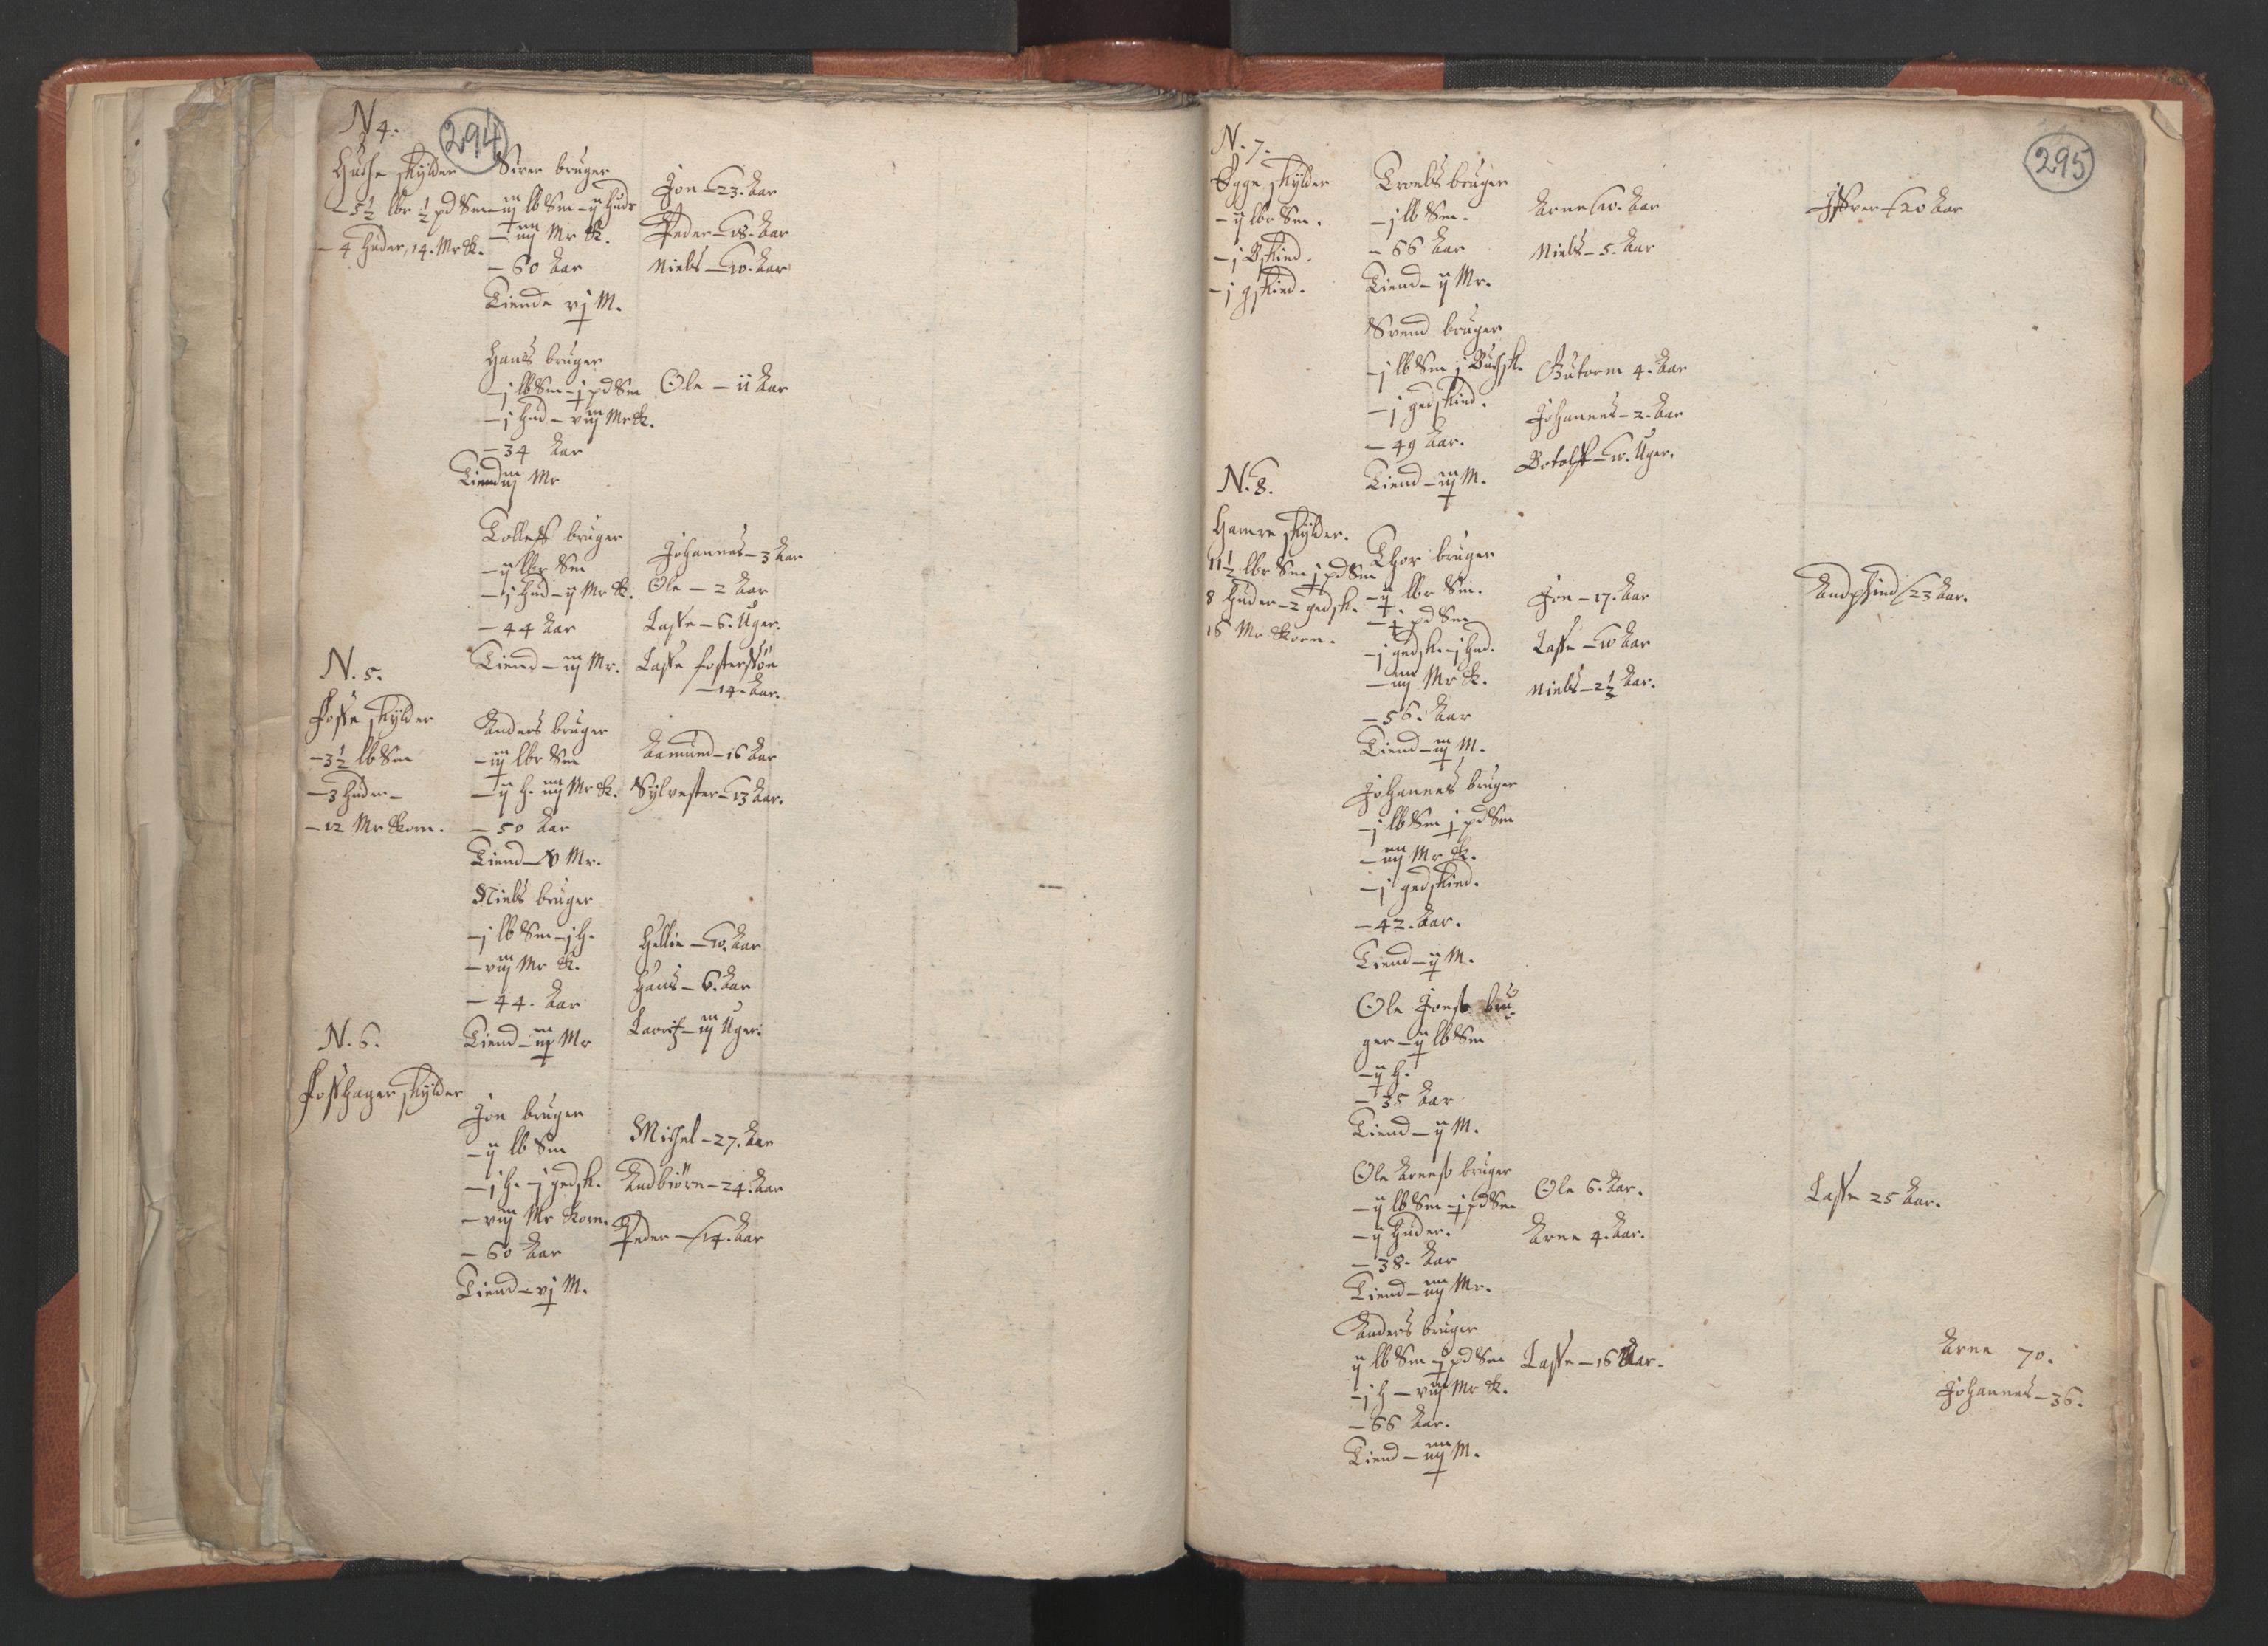 294
N 4.
Huse skylder
- 5½ lbr ½ pd Sm
- 4 huder, 14. Mr K.
Siver bruger
- iij lb Sm - ij huder
- iiij Mr K.
- 60 Aar
Tiende vj M.
Jon - 23. Aar
Peder - 18. Aar
Niels - 10. Aar
Hans bruger
- j lb Sm - j pd Sm
- j hud - viij Mr K.
- 34 Aar
Tiend iij Mr
Ole - 11 Aar
Tolleff bruger
- ij lbr Sm
- j hud - ij Mr K.
- 44 Aar
Tiend - iij Mr.
Johannes - 3 Aar
Ole - 2 Aar
Lasse - 6. Uger.
Lasse fostersøn
- 14. Aar.
N. 5.
Fosse skylder
- 3½ lb Sm
- 3 huder -
- 12 Mr Korn.
Anders bruger
- iij lbr Sm
- ij h. iiij Mr K.
- 50 Aar
Tiend - v Mr.
Aamund - 16 Aar
Sylvester - 13 Aar.
Niels bruger
- j lb Sm - j h.
- viij Mr K.
- 44. Aar
Tiend - iij Mr
Hellie - 10. Aar
Hans - 6. Aar
Lavritz - iij Uger.
N. 6.
Fosshager skylder
Jon bruger
- ij lb Sm
- j h. - j gedsk.
- viij Mr Korn.
- 60 Aar
Tiend - vj M.
Michel - 27. Aar
Audbiörn - 24. Aar
Peder - 14. Aar
295
N. 7.
Egge skylder
- ij lbr Sm.
- j Bskind.
- j gskind.
Troels bruger
- j lb Sm.
- 66 Aar
Tiend - ij Mr.
Arne 10. Aar
Niels - 5. Aar
Iffver - 20 Aar
Svend bruger
- j lb Sm j Buchsk.
- j gedskind.
- 49 Aar.
Tiend - iij M.
Gutorm 4. Aar
Johannes - 2. Aar
Botolff - 10. Uger.
N. 8.
Hamre skylder.
11½ lbr Sm j pd Sm
8 huder - 2 gedsk.
16 Mr Korn.
Thor bruger
- ij lbr Sm.
- j pd Sm
- j gedsk. - j hud.
- iiij Mr K.
- 56. Aar
Tiend - iij M.
Jon - 17. Aar
Lasse - 10 Aar
Niels - 2½ Aar.
Audphind 23 Aar.
Johannes bruger
- j lb Sm j pd Sm
- iiij Mr K.
- j gedskind.
- 42. Aar.
Tiend - ij M.
Ole Jens bru-
ger - ij lb Sm
- ij h.
- 35 Aar
Tiend - ij M.
Ole Arnes bruger
- ij lb Sm - j pd Sm
- ij huder.
- 38. Aar
Tiend - iiij Mr.
Ole 6. Aar.
Arne 4. Aar.
Lasse 25 Aar.
Anders bruger
ij lb Sm - j pd Sm
- j h - viij Mr K.
- 66 Aar.
Tiend - iiij M.
Lasse - 16 Aar.
Arne 70.
Johannes - 36.